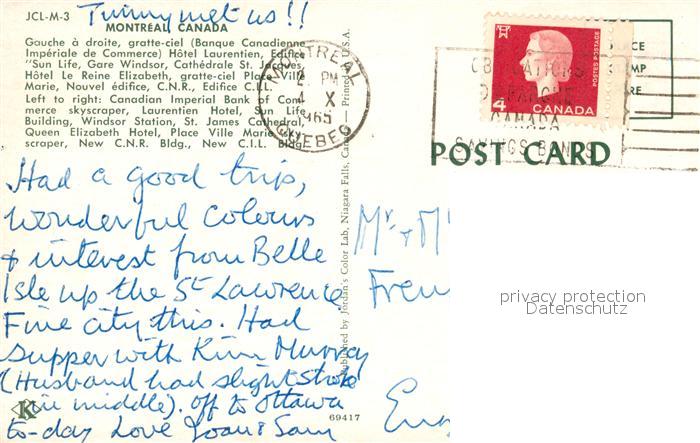 JCL-M-3
met us!!
MONTREAL, CANADA
Gauche à droite, gratte-ciel (Banque Canadienne
Impériale de Commerce) Hôtel Laurentien, Edifice
"Sun Life, Gare Windsor, Cathédrale St. Jacques,
Hôtel Le Reine Elizabeth, gratte-ciel Place Ville
Marie, Nouvel édifice, C.N.R., Edifice C.I.L.
Left to right: Canadian Imperial Bank of Com-
merce skyscraper, Laurentien Hotel, Sun Life
Building, Windsor Station, St. James Cathedral,
Queen Elizabeth Hotel, Place Ville Marie sky-
scraper, New C.N.R. Bldg., New C.I.L. Bldg.
MONTREAL
PM
X
1965
QUEBEC
4
CANADA
POSTES POSTAGE
CANADA
SAVINGS BONDS
POST CARD
Had a good trip,
wonderful colours
+ interest from Belle
Isle up the St Lawrence.
Fine city this. Had
supper with Kim Murray
(Husband had slight stroke
in middle). off to Ottawa
to-day Love Joan & Sam
K
69417
Published by Jordan's Color Lab, Niagara Falls, Canada - Printed in U.S.A.
Mr + M
Fren
Eng
privacy protection
Datenschutz